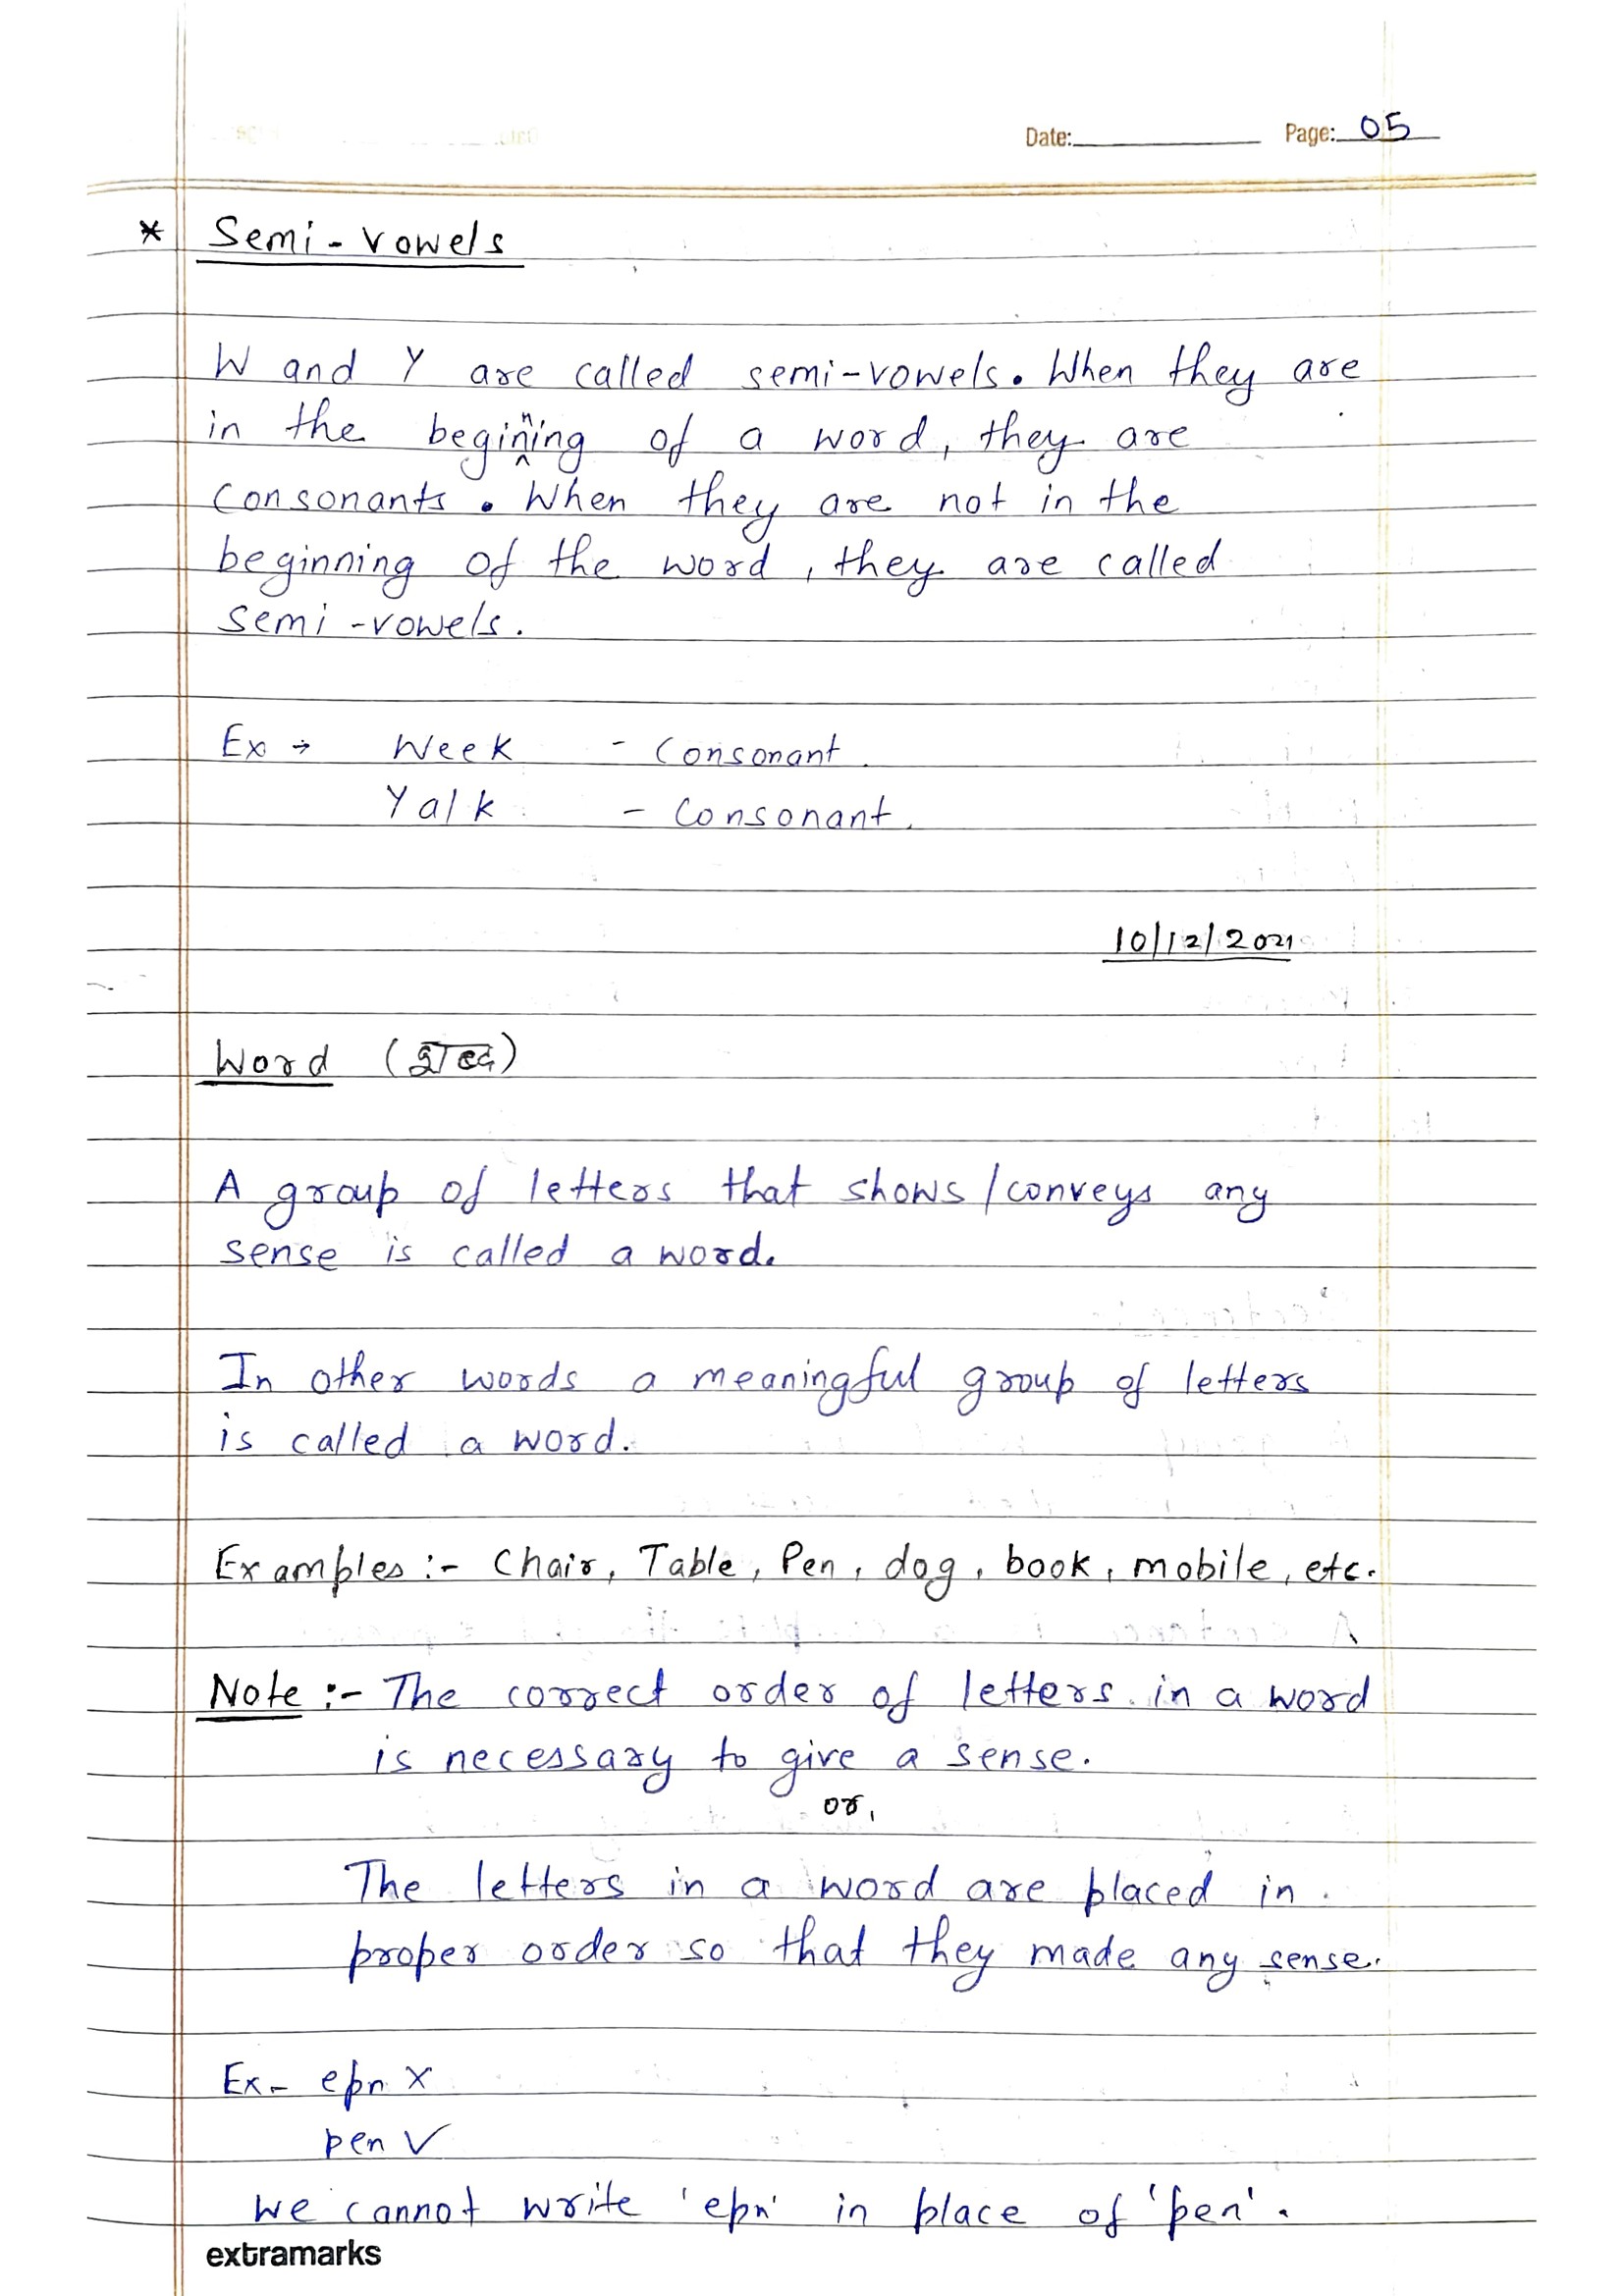 Date: Page: 05
* Semi-vowels
W and Y are called semi-vowels. When they are
in the beginning of a word, they are
consonants. When they are not in the
beginning of the word, they are called
semi-vowels.
Ex → Week - Consonant.
Yalk - Consonant.
10/12/2021
Word (शब्द)
A group of letters that shows/conveys any
sense is called a word.
In other words a meaningful group of letters
is called a word.
Examples :- Chair, Table, Pen, dog, book, mobile, etc.
Note :- The correct order of letters in a word
is necessary to give a sense.
or,
The letters in a word are placed in
proper order so that they made any sense.
Ex- epn ×
pen ✓
We cannot write 'epn' in place of 'pen'.
extramarks